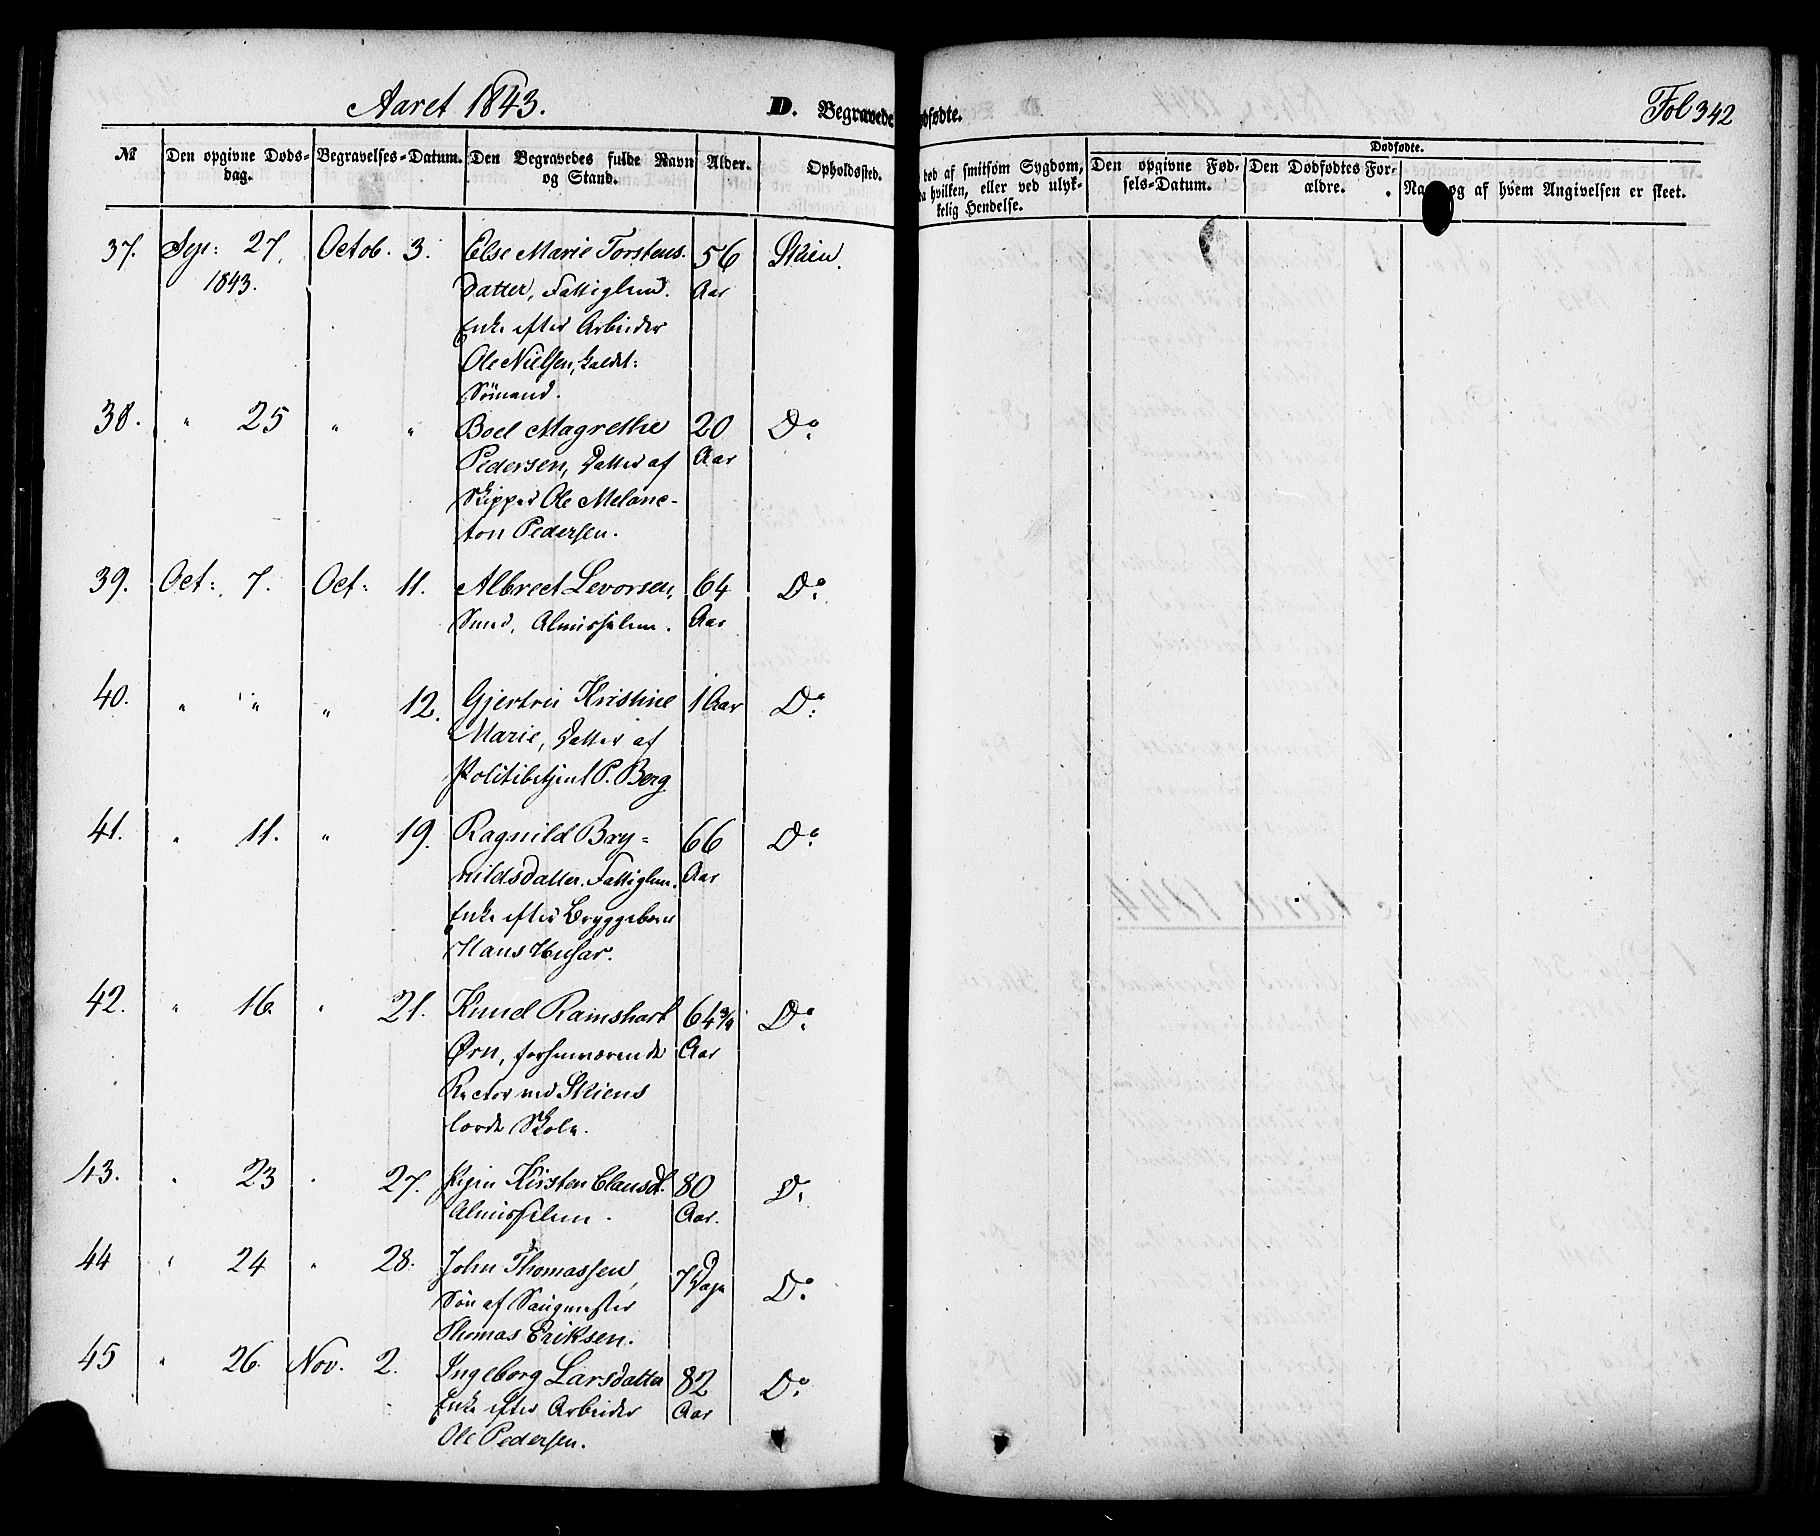 Aaret 1843.
D. Begravede
dfødte.
Fol 342
Dødfødte.
№ Den opgivne Døds- Begravelses-Datum. Den Begravedes fulde Navn Alder. Opholdssted.
dag. og Stand.
død af smitsom Sygdom, Den opgivne Fød- Den Dødfødtes For-
a hvilken, eller ved ulyk- sels-Datum. ældre. og af hvem Angivelsen er skeet.
kelig Hendelse.
37. Sep: 27. Octob. 3. Else Marie Torstens- 56 Skien.
1843. Datter, Fattiglem. Aar
Enke efter Arbeider
Ole Nielsen, kaldet:
Sømand.
38. " 25 " " Boel Magrethe 20 Do.
Pedersen, Datter af Aar
Skipper Ole Melanc-
ton Pedersen.
39. Oct: 7. Oct: 11. Albrect Levorsen, 64 Do.
Smed, Almisselem. Aar
40. " " " 12. Gjertru Kristine 1 Aar Do.
Marie, Datter af
Politibetjent P. Berg
41. " 11. " 19. Ragnild Bry- 66 Do.
nildsdatter. Fattiglem. Aar
Enke efter Bryggeborer
Hans Husar.
42. " 16. " 21. Knud Ramshart 64 3/4 Do.
Ørn, forhenværende Aar
Rector ved Skiens
lærde Skole.
43. " 23 " 27. Pigen Kirsten Clausd. 80 Do.
Almisselem. Aar.
44 " 24 " 28. John Thomassen, 7 Dage Do.
Søn af Saugmester
Thomas Eriksen.
45 " 26. Nov. 2. Ingeborg Larsdatter 82 Do.
Enke efter Arbeider Aar
Ole Pedersen.